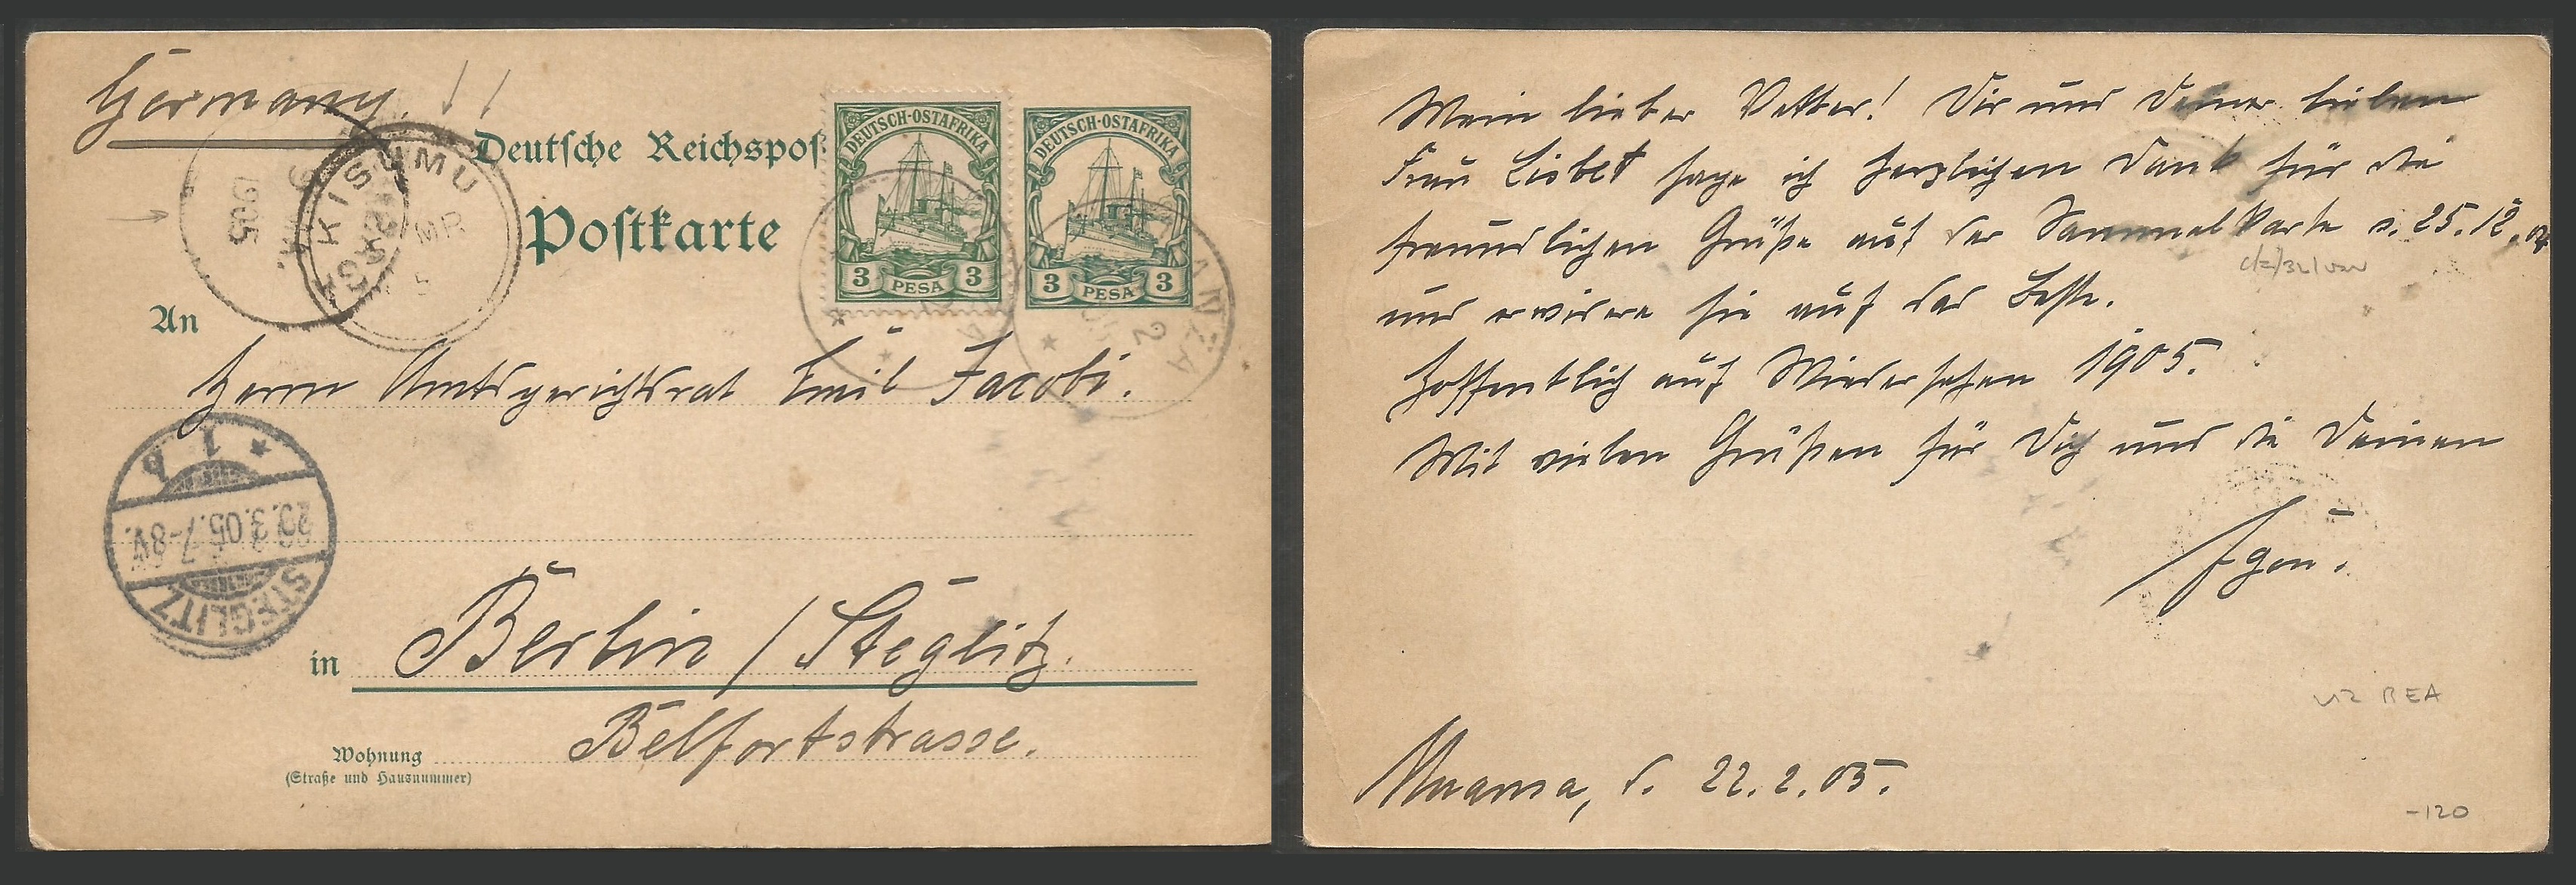 Germany.
Deutsche Reichspost
Postkarte
DEUTSCH-OSTAFRIKA
3 PESA 3
DEUTSCH-OSTAFRIKA
3 PESA 3
KISUMU
MR
5
1905
MAR
2
An
Herrn Amtsgerichtsrat Emil Jacobi.
STEGLITZ
* 1 b
3.05.7-8V.
in Berlin / Steglitz.
Wohnung
(Straße und Hausnummer)
Belfortstrasse.
Mein lieber Vetter! Dir und Deiner lieben
Frau Lisbet sage ich herzlichen Dank für die
freundlichen Grüße auf der Sammelkarte v. 25.12.04
und erwidere sie auf das Beste.
Hoffentlich auf Wiedersehen 1905.
Mit vielen Grüßen für Dich und die Deinen
Egon.
Muansa, d. 22.2.05.
BEA
-120